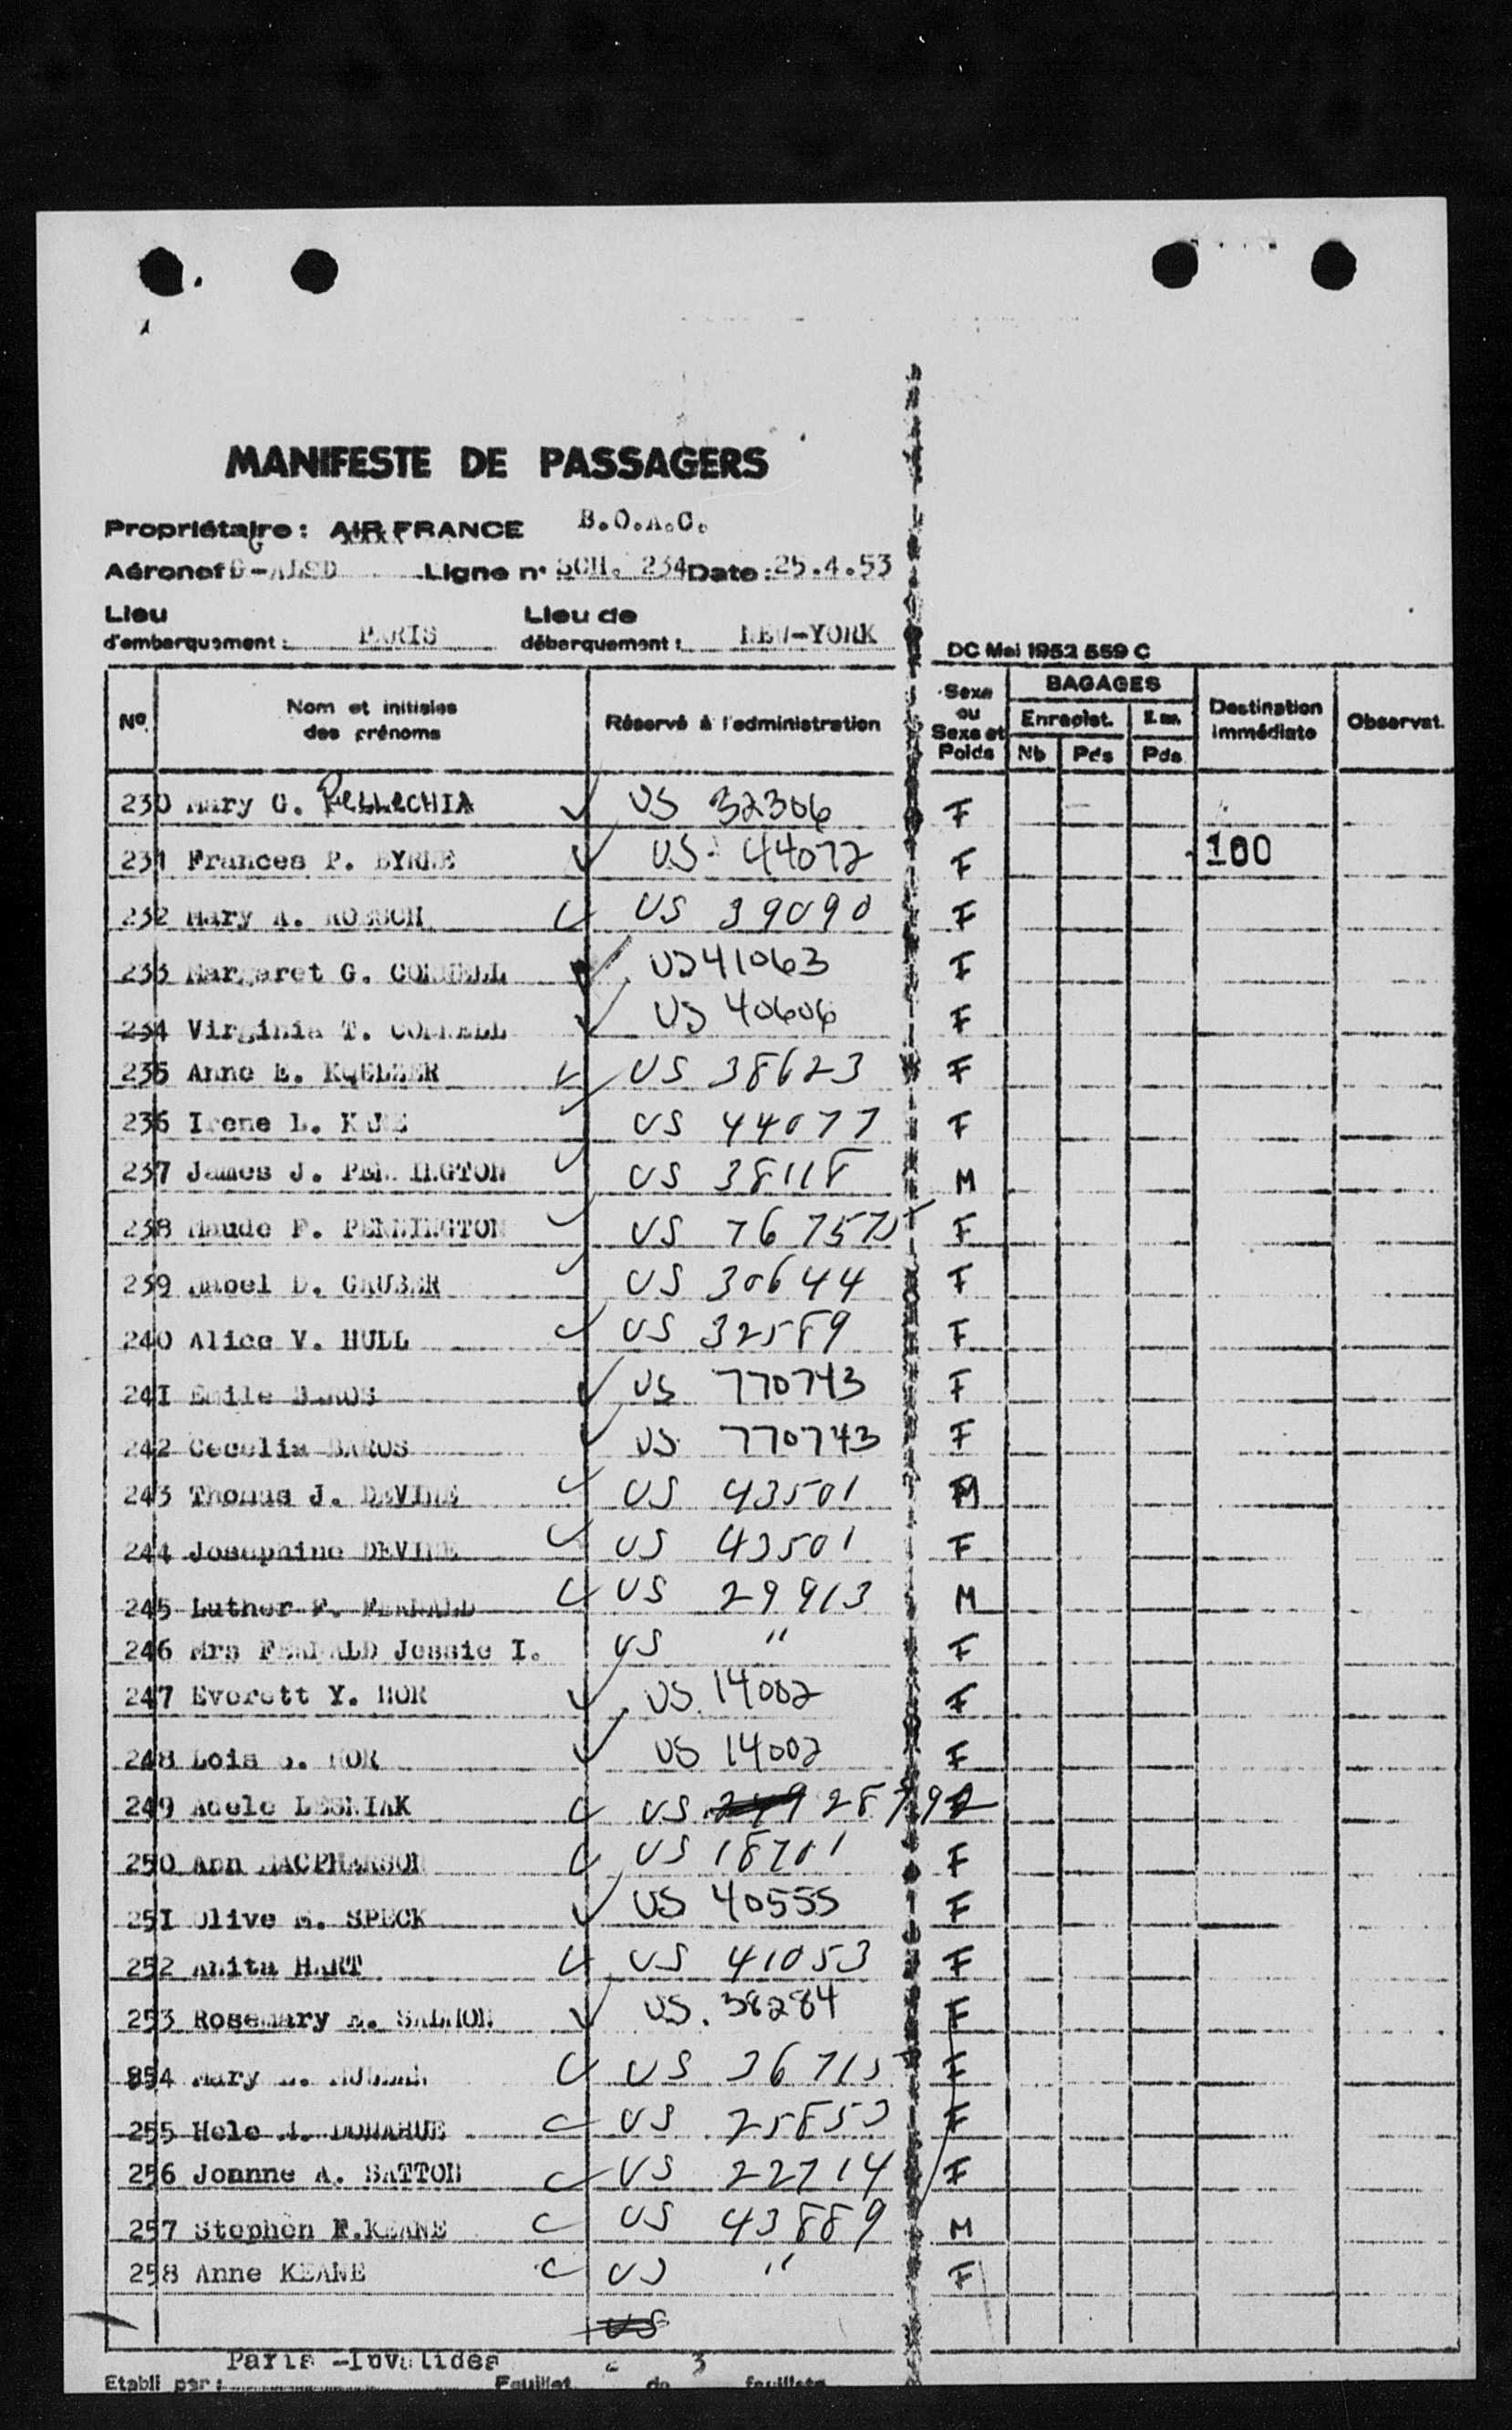 MANIFESTE DE PASSAGERS
Propriétaire: AIR FRANCE B.O.A.C.
Aéronef G-ALSD Ligne n° SCH. 234 Date: 25.4.53
Lieu d'embarquement: PARIS Lieu de débarquement: NEW-YORK
DC Mai 1952 559 C
No. Nom et initiales des prénoms Réservé à l'administration Sexe ou Sexe et Poids BAGAGES Enregist. Nb Pds Pds Destination immédiate Observat.
230 Mary G. PELLECHIA US 32306 F
231 Frances P. BYRNE US 44072 F 100
232 Mary A. US 39090 F
233 Margaret G. CONNELL US 41063 F
234 Virginia T. CONNELL US 40606 F
235 Anne E. KOELZER US 38623 F
236 Irene L. US 44077 F
237 James J. PENNINGTON US 38118 M
238 Maude F. PENNINGTON US 767575 F
239 D. GRUBER US 30644 F
240 Alice V. HULL US 32589 F
241 Emile BAROS US 770743 F
242 Cecelia BAROS US 770743 F
243 Thomas J. DEVINE US 43501 M
244 Josephine DEVINE US 43501 F
245 Luther F. FERNALD US 29913 M
246 Mrs FERNALD Jessie I. US " F
247 Everett Y. HOR US 14002 F
248 Lois S. HOR US 14002 F
249 Adele LESNIAK US 28792
250 Ann MACPHERSON US 18701 F
251 Olive M. SPECK US 40555 F
252 Anita HART US 41053 F
253 Rosemary E. SALMON US. 38284 F
254 Mary US 36715 F
255 Hele DONAHUE US 25853 F
256 Joanne A. SATTON US 22714 F
257 Stephen F.KEANE US 43889 M
258 Anne KEANE US " F
US
Paris -Invalides
Etabli par: Feuillet de 3 feuillets